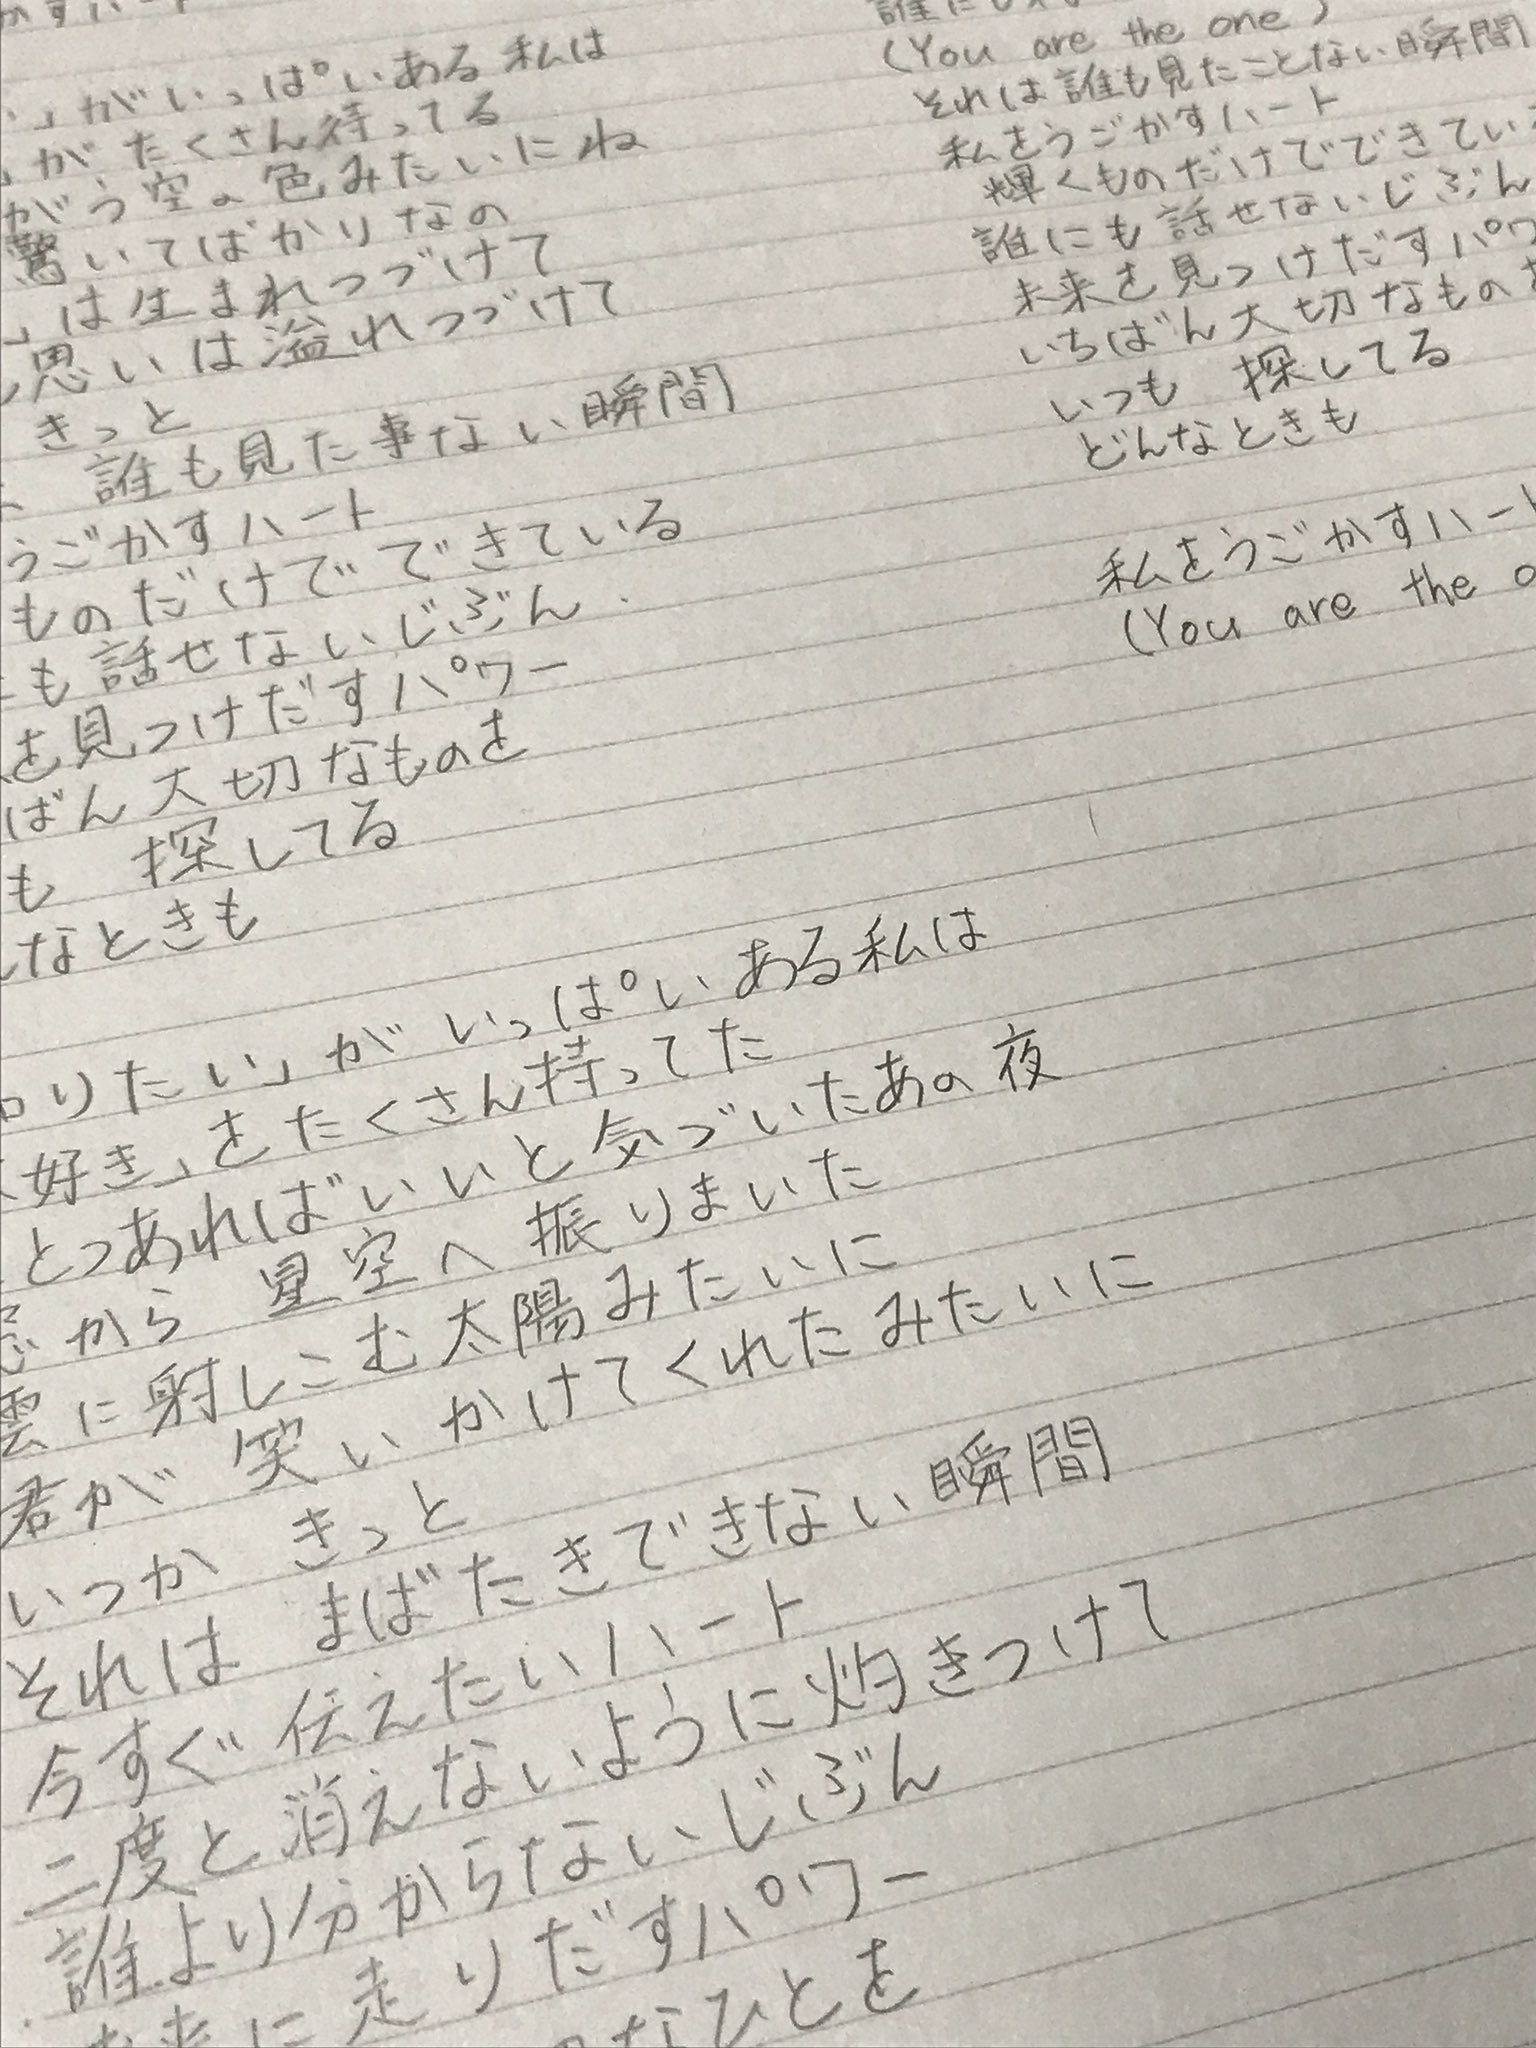 かすハート
い」がいっぱいある私は
がたくさん待ってる
がう空の色みたいにね
驚いてばかりなの
」は生まれつづけて
思いは溢れつづけて
きっと
誰も見た事ない瞬間
うごかすハート
ものだけでできている
も話せないじぶん
を見つけだすパワー
ばん大切なものを
も 探してる
んなときも
りたい」がいっぱいある私は
好き」をたくさん持ってた
とつあればいいと気づいたあの夜
窓から 星空へ振りまいた
雲に射しこむ太陽みたいに
君が 笑いかけてくれたみたいに
いつか きっと
それは まばたきできない瞬間
今すぐ伝えたいハート
二度と消えないように灼きつけて
誰より分からないじぶん
未来に走りだすパワー
なひとを
誰に
(You are the one)
それは誰も見たことない瞬間
私をうごかすハート
輝くものだけでできている
誰にも話せないじぶん
未来を見つけだすパワ
いちばん大切なものを
いつも 探してる
どんなときも
私をうごかすハート
(You are the o